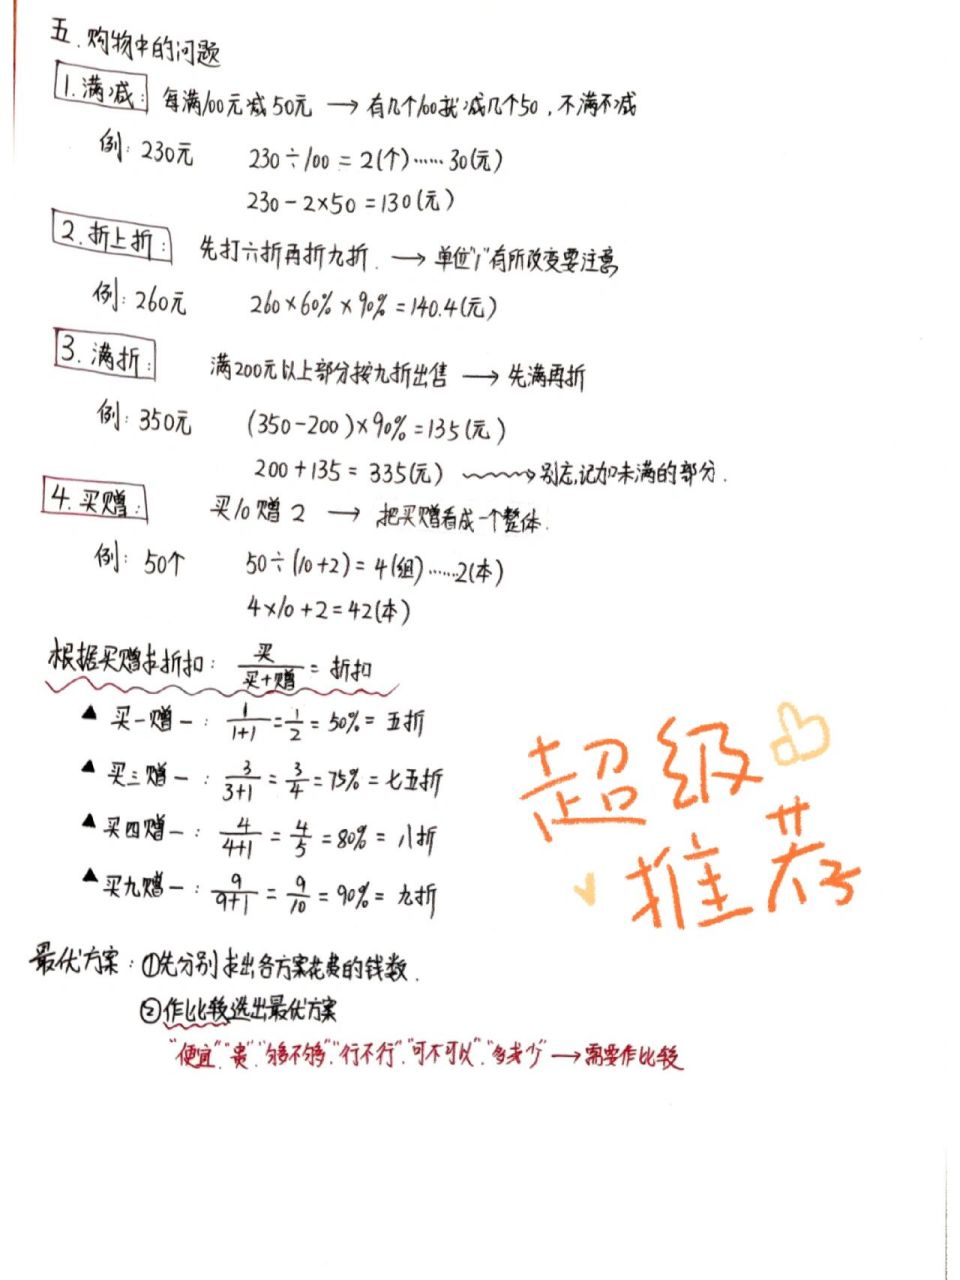 五.购物中的问题
1.满减: 每满100元减50元 → 有几个100就减几个50,不满不减
例: 230元 230÷100=2(个)……30(元)
230-2×50=130(元)
2.折上折: 先打六折再折九折. → 单位"1"有所改变要注意
例: 260元 260×60%×90%=140.4(元)
3.满折: 满200元以上部分按九折出售 → 先满再折
例: 350元 (350-200)×90%=135(元)
200+135=335(元) → 别忘记加未满的部分.
4.买赠: 买10赠2 → 把买赠看成一个整体.
例: 50个 50÷(10+2)=4(组)……2(本)
4×10+2=42(本)
根据买赠求折扣: 买/买+赠=折扣
▲ 买一赠一: 1/1+1=1/2=50%=五折
▲ 买三赠一: 3/3+1=3/4=75%=七五折
▲ 买四赠一: 4/4+1=4/5=80%=八折
▲ 买九赠一: 9/9+1=9/10=90%=九折
超级
推荐
最优方案: ①先分别求出各方案花费的钱数.
②作比较选出最优方案
"便宜""贵""够不够""行不行""可不可以""多或少"→需要作比较